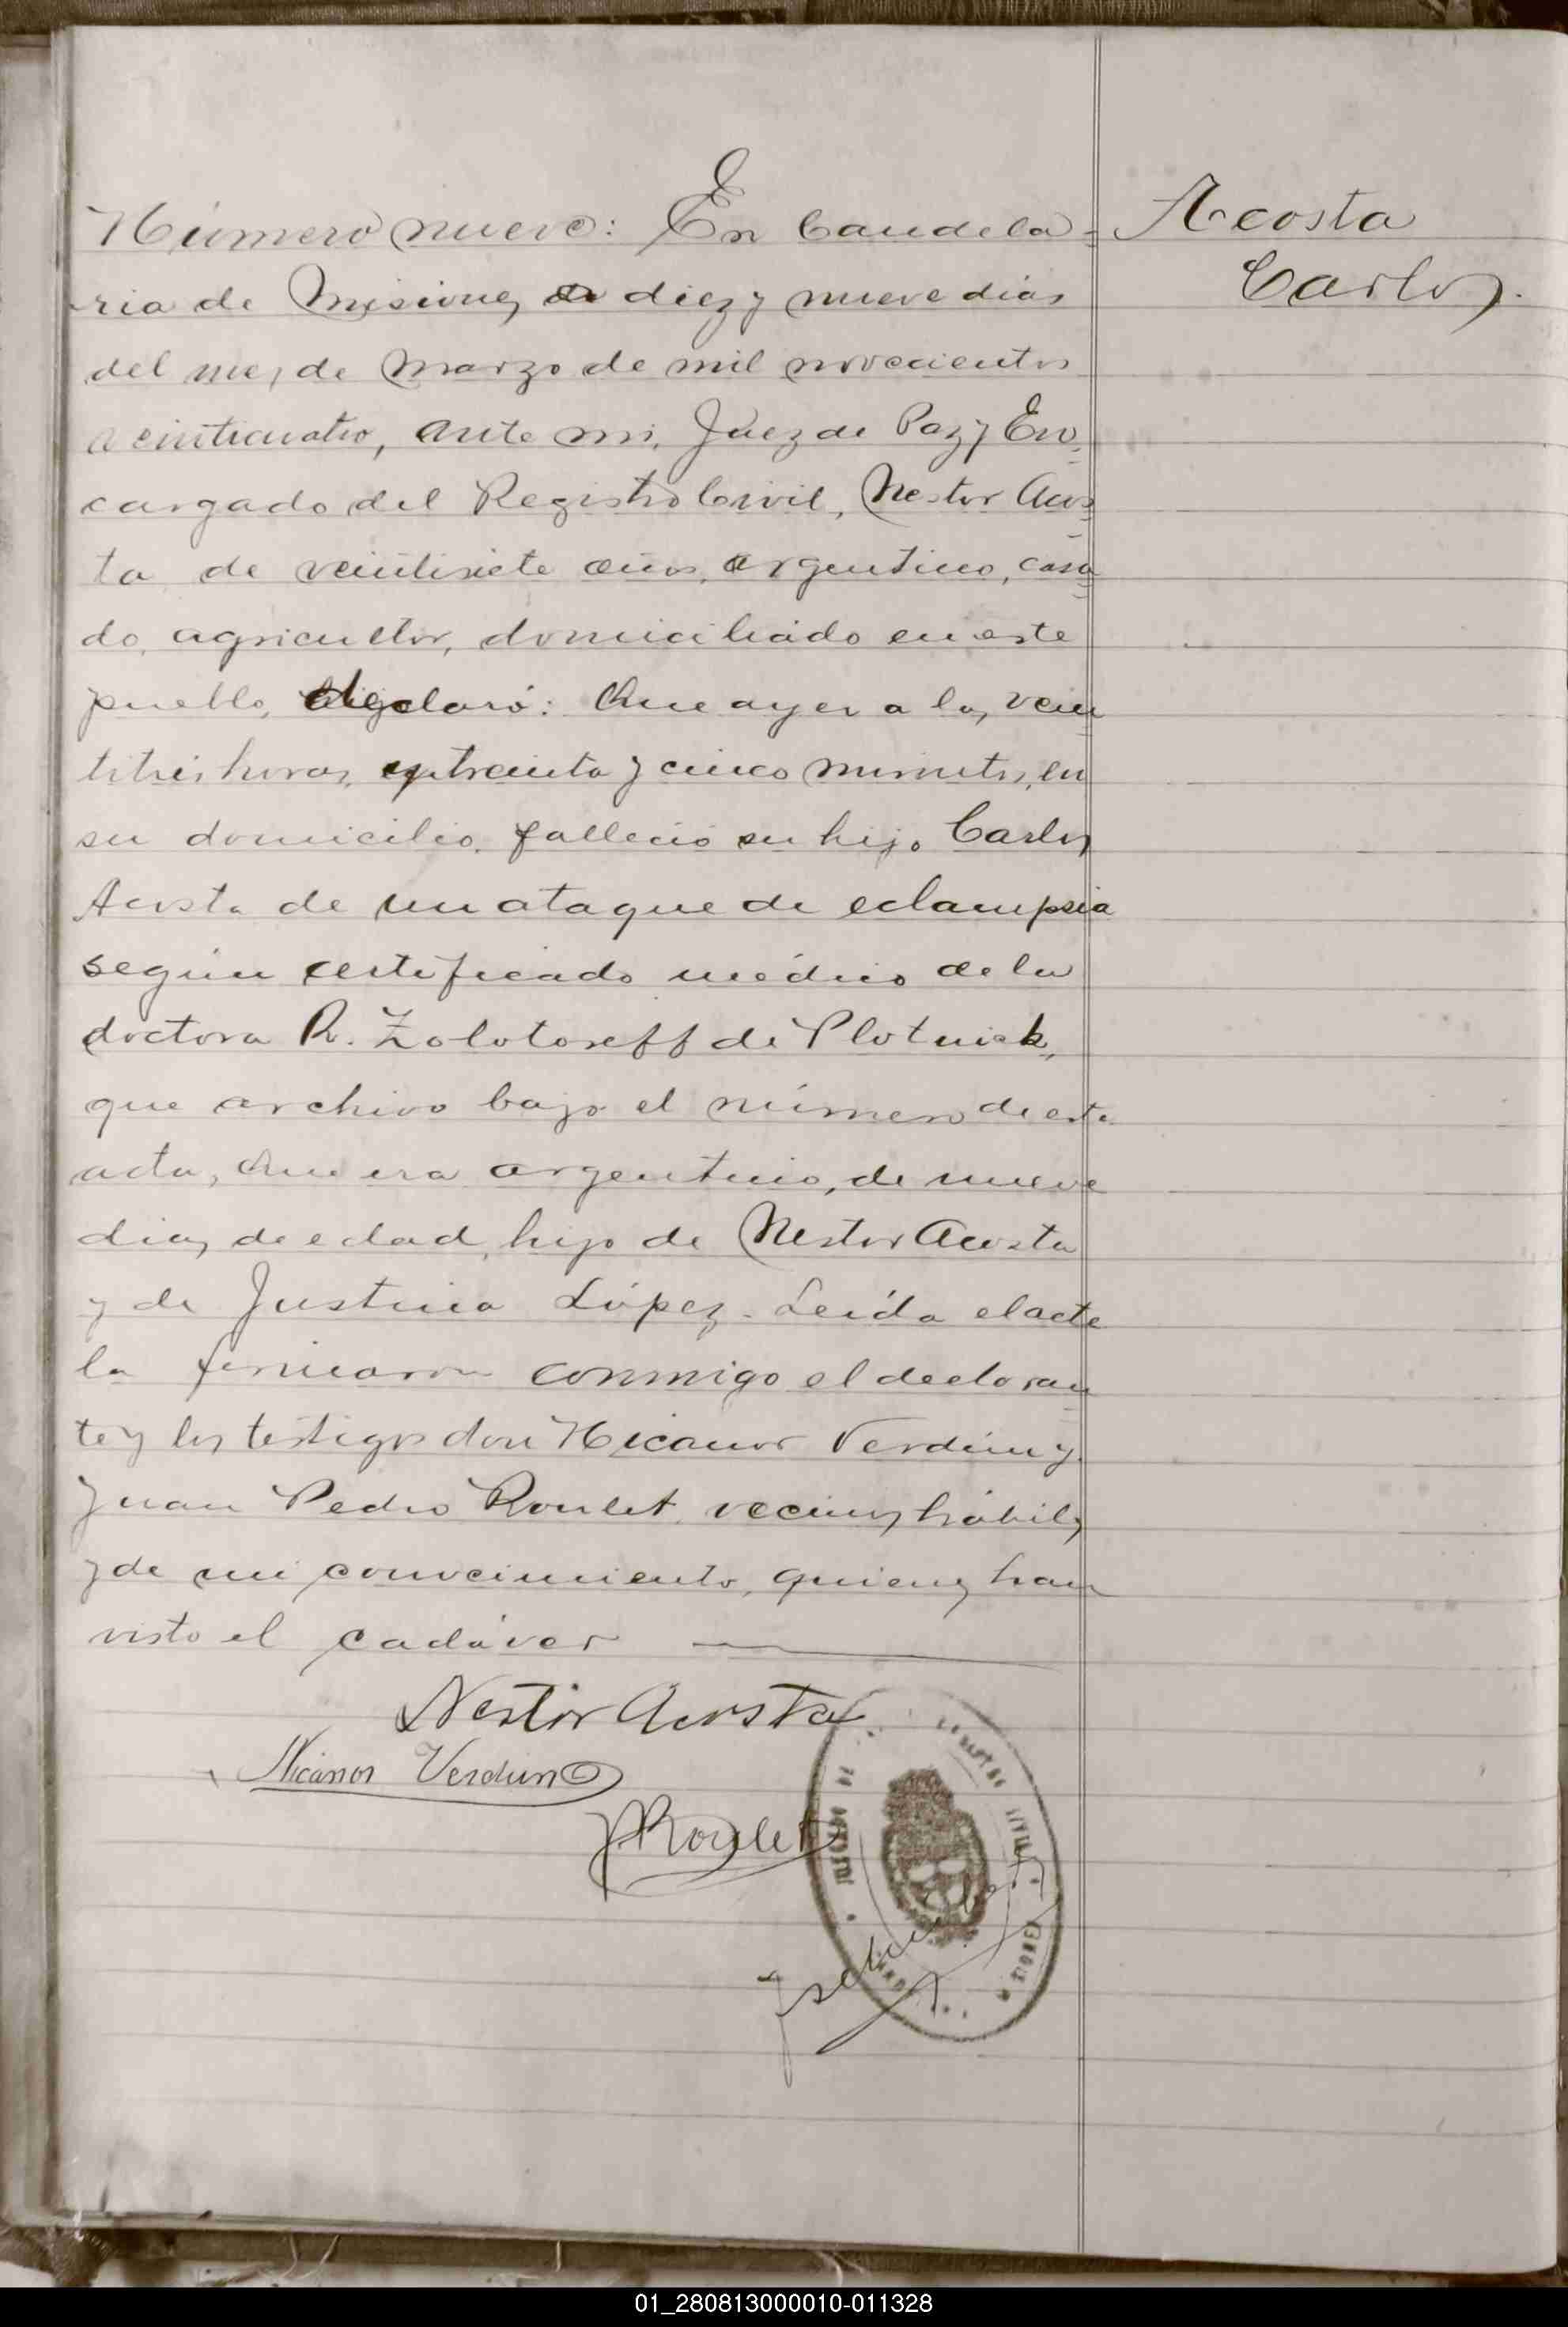 Número nueve: En Candela=
ria de Misiones a diez y nueve dias
del mes de Marzo de mil novecientos
veinticuatro, ante mi, Juez de Paz y En=
cargado del Registro Civil, Nestor Acos=
ta de veintisiete años, argentino, casa=
do, agricultor, domiciliado en este
pueblo, declaró: Que ayer a las vein
titrés horas, treinta y cinco minutos, en
su domicilio, falleció su hijo Carlos
Acosta de un ataque de eclampsia
según certificado médico de la
doctora R. Zolotoreff de Plotnick,
que archivo bajo el número de esta
acta, Que era argentino, de nueve
dias de edad, hijo de Nestor Acosta
y de Justina López. Leída el acta
la firmaron conmigo el declaran=
te y los testigos don Nicanor Verdún y
Juan Pedro Roulet, vecinos hábiles
y de mi conocimiento, quienes han
visto el cadáver
Acosta
Carlos.
Nestor Acosta
Nicanor Verdun
JPRoulet
01_280813000010-011328